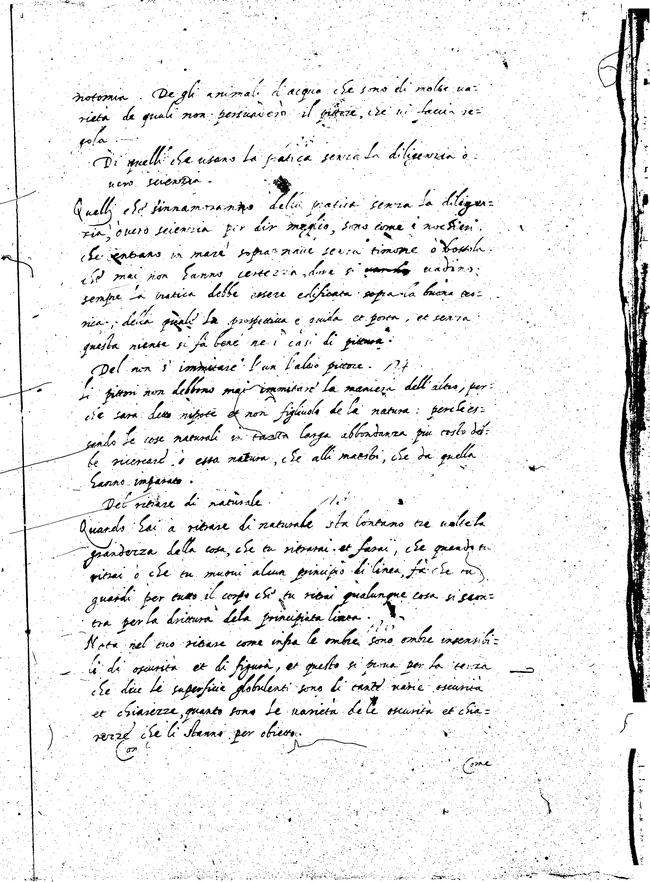 notomia. De gli animali d'acqua che sono di molte ua=
rieta de quali non persuaderò il pittore, che ui faccia re=
gola
Di quelli che usano la pratica senza la diligenzia o
uero scienzia.
Quelli che s'innamoranno della pratica senza la diligen=
zia, ouero scienzia per dir meglio, sono come i nochieri
che entrano in mare sopra naue senza timone ò bossola
che mai non hanno certezza doue si uadino:
sempre la pratica debbe essere edificata sopra la buona teo=
rica, della quale la prospettiua è guida et porta, et senza
questa niente si fa bene ne i casi di pittura.
Del non s'immitare l'un l'altro pittore.
Li pittori non debbono mai immitare la maniera dell'altro, per=
che sara detto nipote et non figliuolo de la natura: perche es=
sendo le cose naturali in tanta larga abbondanza piu tosto deb=
be ricercare ò essa natura, che alli maestri, che da quella
hanno imparato.
Del ritrare di naturale
Quando hai a ritrare di naturale sta lontano tre uolte la
grandezza della cosa, che tu ritrarai et farai, che quando tu
ritrai ò che tu muoui alcun principio di linea, fa che tu
guardi per tutto il corpo che tu ritrai qualunque cosa si scon=
tra per la drittura dela principiata linea.
Nota nel tuo ritrare come infra le ombre sono ombre insensibi=
li di oscurità et di figura, et questo si proua per la terza
che dice le superficie globulenti sono di tante uarie oscurità
et chiarezze, quanto sono le uarietà dele oscurità et chia=
rezze che li stanno per obietto.
Con
Come